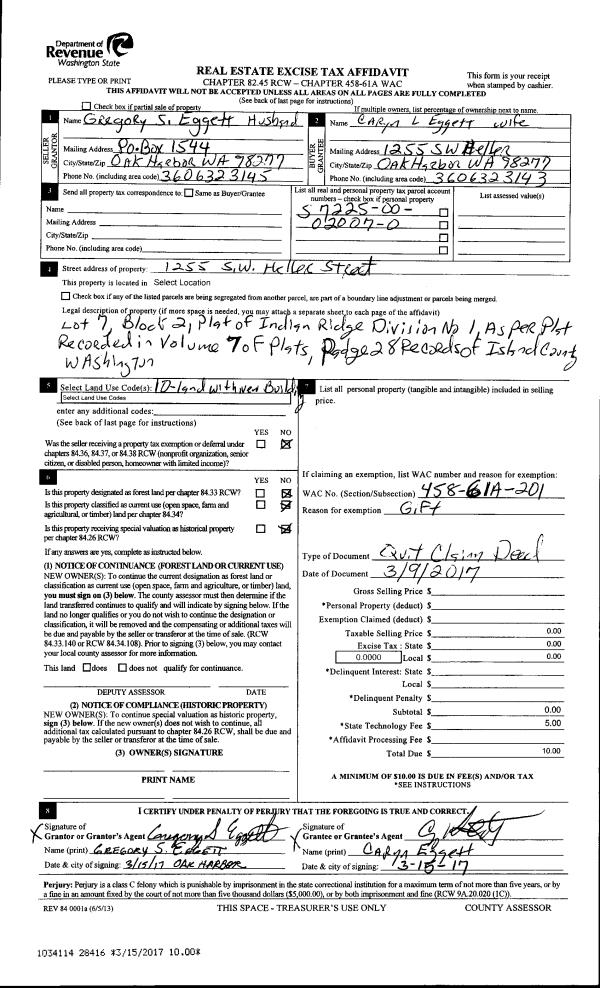 Department of
Revenue
Washington State
PLEASE TYPE OR PRINT
REAL ESTATE EXCISE TAX AFFIDAVIT
CHAPTER 82.45 RCW – CHAPTER 458-61A WAC
This form is your receipt
when stamped by cashier.
THIS AFFIDAVIT WILL NOT BE ACCEPTED UNLESS ALL AREAS ON ALL PAGES ARE FULLY COMPLETED
(See back of last page for instructions)
Check box if partial sale of property
If multiple owners, list percentage of ownership next to name.
1 Name Gregory S. Eggett Husband
SELLER GRANTOR
Mailing Address P.O. Box 1544
City/State/Zip Oak Harbor WA 98277
Phone No. (including area code) 3606323145
2 Name Caryn L Eggett wife
BUYER GRANTEE
Mailing Address 1255 SW Heller
City/State/Zip Oak Harbor WA 98277
Phone No. (including area code) 3606323143
3 Send all property tax correspondence to: Same as Buyer/Grantee
Name
Mailing Address
City/State/Zip
Phone No. (including area code)
List all real and personal property tax parcel account
numbers – check box if personal property
S7225-00-
02007-0
List assessed value(s)
4 Street address of property: 1255 S.W. Heller Street
This property is located in Select Location
Check box if any of the listed parcels are being segregated from another parcel, are part of a boundary line adjustment or parcels being merged.
Legal description of property (if more space is needed, you may attach a separate sheet to each page of the affidavit)
Lot 7, Block 2, Plat of Indian Ridge Division No 1, As Per Plat
Recorded in Volume 7 of Plats, Page 28 Records of Island County
Washington
5 Select Land Use Code(s):
Select Land Use Codes
enter any additional codes:
(See back of last page for instructions)
YES NO
Was the seller receiving a property tax exemption or deferral under
chapters 84.36, 84.37, or 84.38 RCW (nonprofit organization, senior
citizen, or disabled person, homeowner with limited income)?
6 YES NO
Is this property designated as forest land per chapter 84.33 RCW?
Is this property classified as current use (open space, farm and
agricultural, or timber) land per chapter 84.34?
Is this property receiving special valuation as historical property
per chapter 84.26 RCW?
If any answers are yes, complete as instructed below.
(1) NOTICE OF CONTINUANCE (FOREST LAND OR CURRENT USE)
NEW OWNER(S): To continue the current designation as forest land or
classification as current use (open space, farm and agriculture, or timber) land,
you must sign on (3) below. The county assessor must then determine if the
land transferred continues to qualify and will indicate by signing below. If the
land no longer qualifies or you do not wish to continue the designation or
classification, it will be removed and the compensating or additional taxes will
be due and payable by the seller or transferor at the time of sale. (RCW
84.33.140 or RCW 84.34.108). Prior to signing (3) below, you may contact
your local county assessor for more information.
This land does does not qualify for continuance.
DEPUTY ASSESSOR DATE
(2) NOTICE OF COMPLIANCE (HISTORIC PROPERTY)
NEW OWNER(S): To continue special valuation as historic property,
sign (3) below. If the new owner(s) does not wish to continue, all
additional tax calculated pursuant to chapter 84.26 RCW, shall be due and
payable by the seller or transferor at the time of sale.
(3) OWNER(S) SIGNATURE
PRINT NAME
7 List all personal property (tangible and intangible) included in selling
price.
If claiming an exemption, list WAC number and reason for exemption:
WAC No. (Section/Subsection) 458-61A-201
Reason for exemption Gift
Type of Document Quit Claim Deed
Date of Document 3/9/2017
Gross Selling Price $
*Personal Property (deduct) $
Exemption Claimed (deduct) $
Taxable Selling Price $ 0.00
Excise Tax : State $ 0.00
0.0000 Local $ 0.00
*Delinquent Interest: State $
Local $
*Delinquent Penalty $
Subtotal $ 0.00
*State Technology Fee $ 5.00
*Affidavit Processing Fee $
Total Due $ 10.00
A MINIMUM OF $10.00 IS DUE IN FEE(S) AND/OR TAX
*SEE INSTRUCTIONS
8 I CERTIFY UNDER PENALTY OF PERJURY THAT THE FOREGOING IS TRUE AND CORRECT.
X Signature of
Grantor or Grantor's Agent Gregory S Eggett
Name (print) GREGORY S. EGGETT
Date & city of signing: 3/15/17 OAK HARBOR
X Signature of
Grantee or Grantee's Agent
Name (print) Caryn Eggett
Date & city of signing: 3-15-17
Perjury: Perjury is a class C felony which is punishable by imprisonment in the state correctional institution for a maximum term of not more than five years, or by
a fine in an amount fixed by the court of not more than five thousand dollars ($5,000.00), or by both imprisonment and fine (RCW 9A.20.020 (1C)).
REV 84 0001a (6/5/13) THIS SPACE - TREASURER'S USE ONLY COUNTY ASSESSOR
1034114 28416 *3/15/2017 10.00*